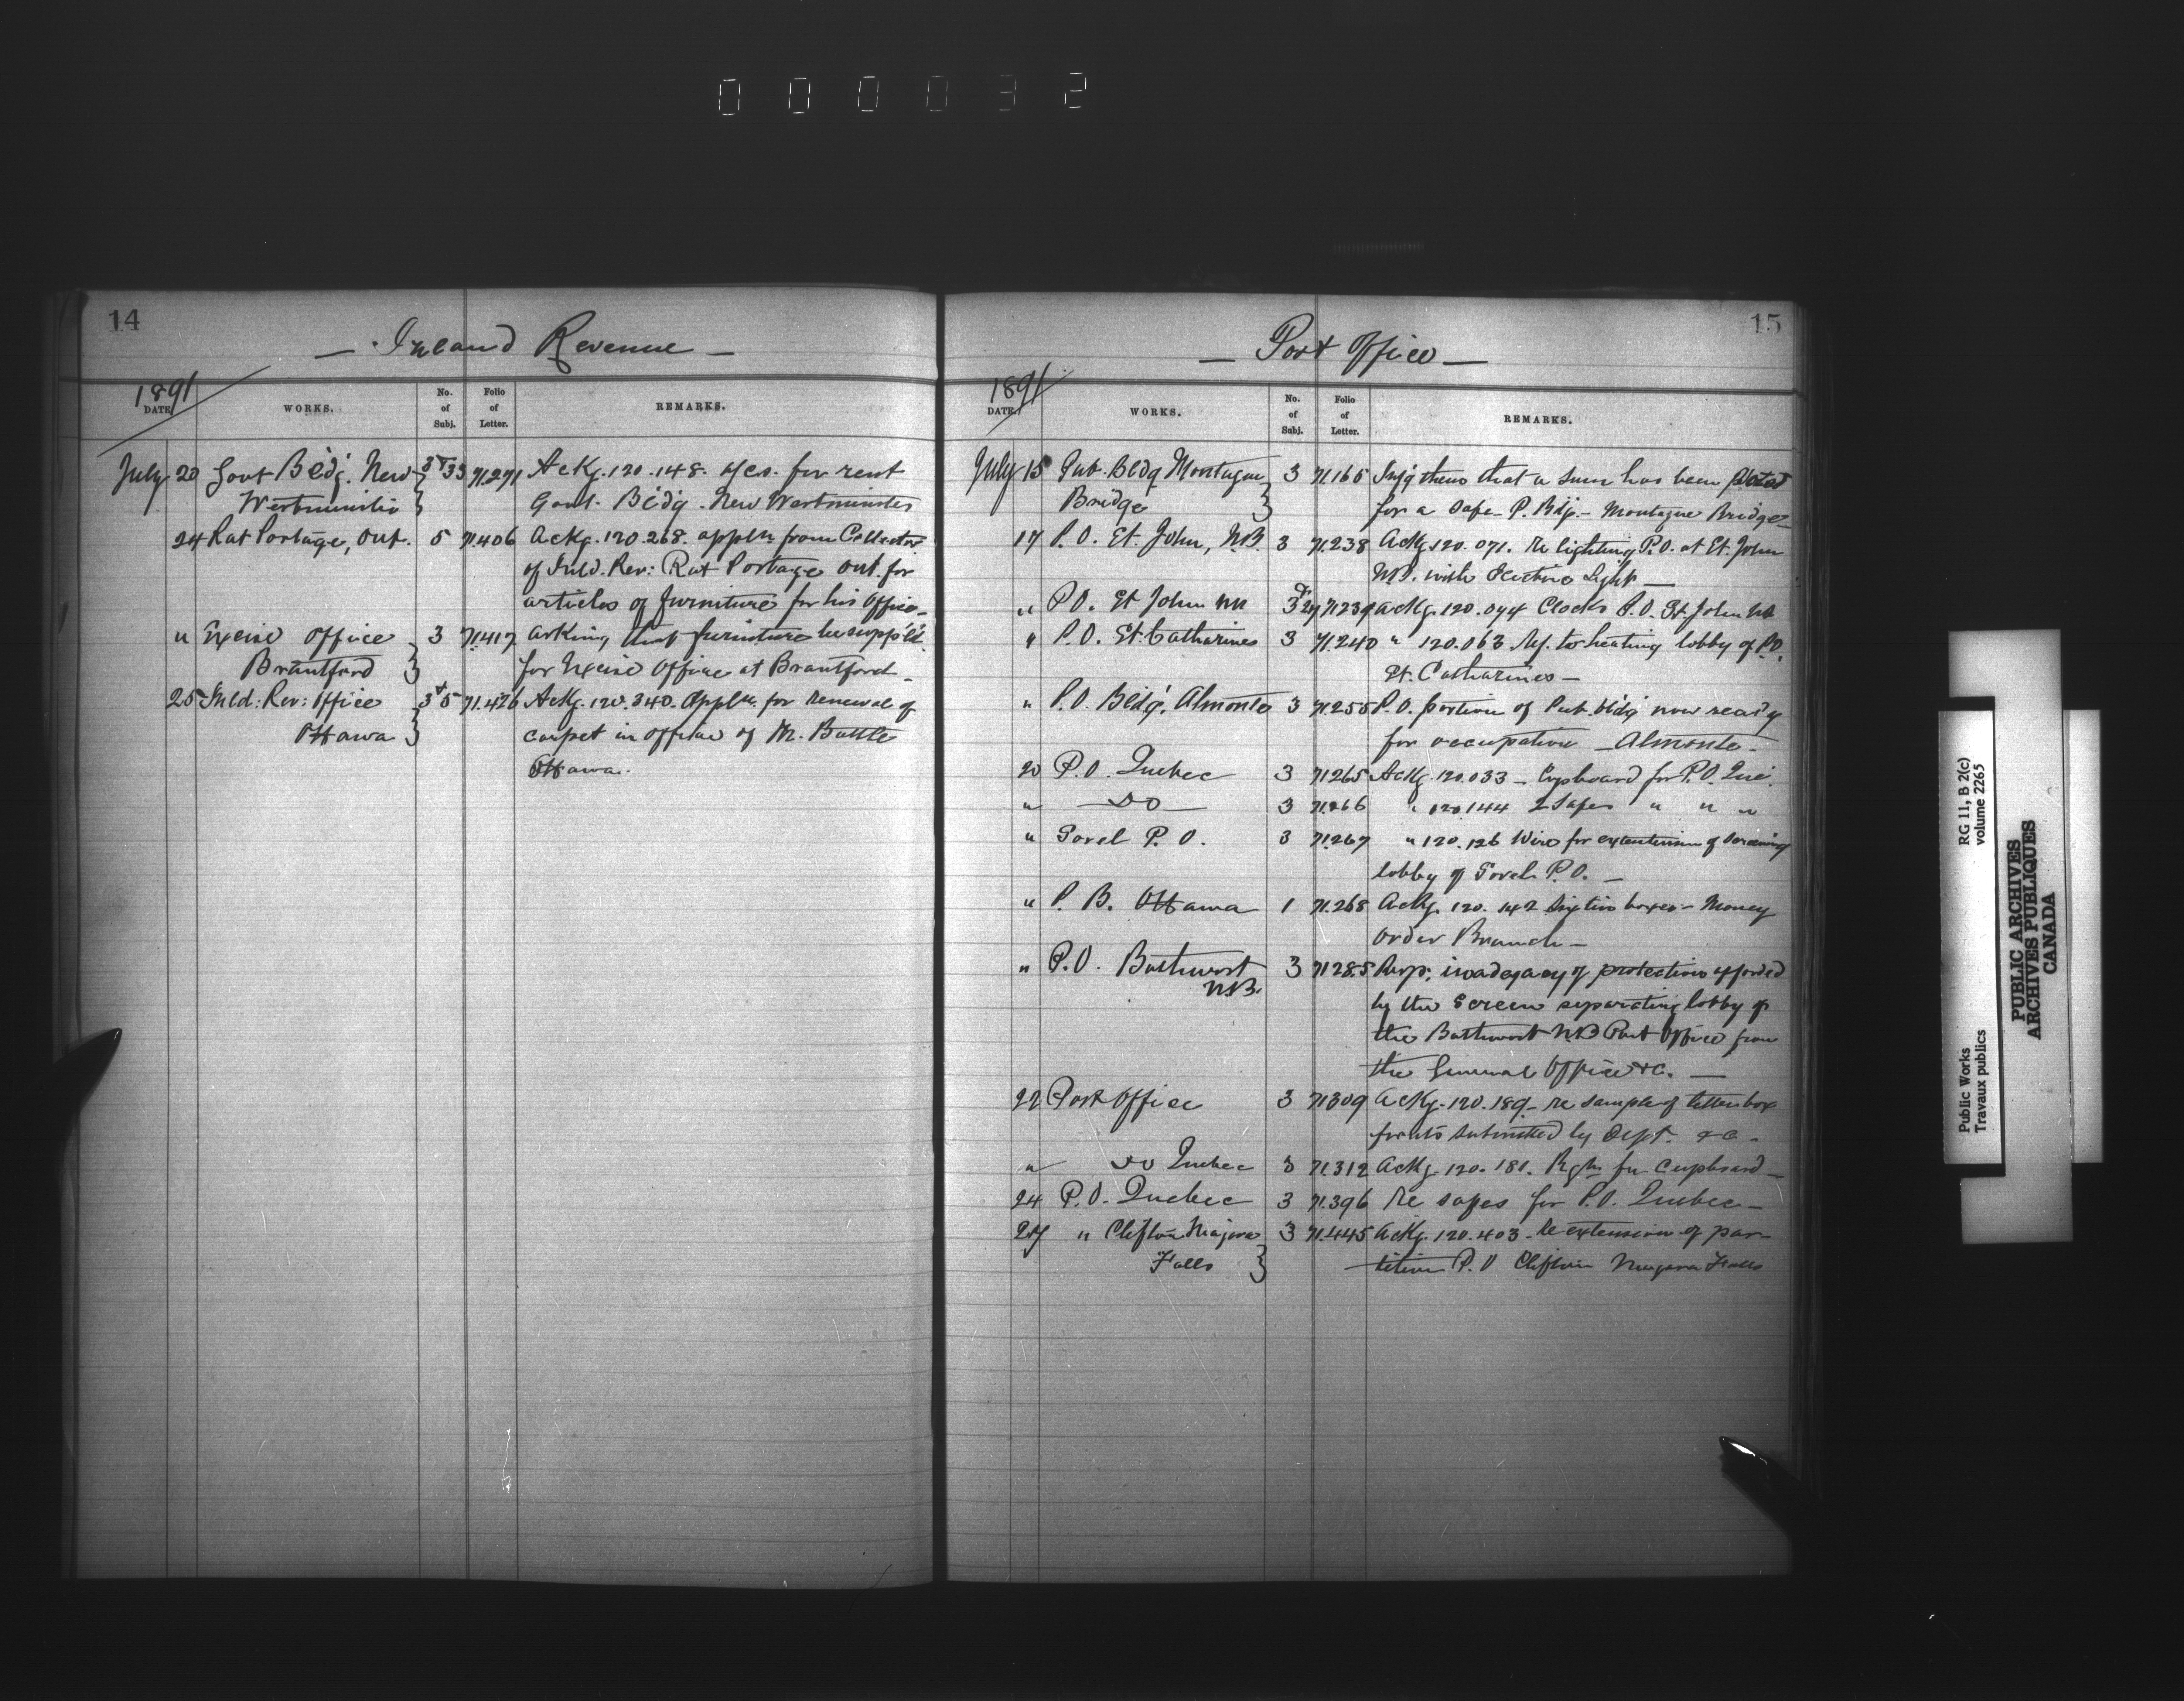 000032
14
— Inland Revenue —
1891
DATE. WORKS. No. of Subj. Folio of Letter. REMARKS.
July 20 Govt Bldg. New 3 & 33 71.271 Ackg. 120.148. a/cs. for rent
Westminster Govt. Bldg. New Westminster
24 Rat Portage, Ont. 5 71.406 Ackg. 120.268. appln from Collector
of Inld. Rev: Rat Portage Ont. for
articles of furniture for his office.
" Excise Office 3 71.417 Asking that furniture be suppl'd.
Brantford for Excise Office at Brantford.
25 Inld: Rev: Office 3 & 5 71.426 Ackg. 120.340. Appln. for renewal of
Ottawa carpet in office of Mr. Battle
Ottawa.
15
— Post Office —
1891
DATE. WORKS. No. of Subj. Folio of Letter. REMARKS.
July 15 Pub. Bldg Montague 3 71.165 Infg them that a sum has been
Bridge for a Safe P. Bdg. — Montague Bridge
17 P.O. St. John, N.B. 3 71.238 Ackg. 120.071. re lighting P.O. at St. John
N.B. with Electric Light —
" P.O. St John NB 3 & 27 71.239 Ackg. 120.074 Clocks P.O. St. John NB
" P.O. St. Catharines 3 71.240 " 120.063 to heating lobby of P.O.
St. Catharines —
" P.O. Bldg. Almonte 3 71.255 P.O. portion of Pub. bldg now ready
for occupation — Almonte —
20 P.O. Quebec 3 71265 Ackg. 120.033 — Cupboard for P.O. Que.
" — Do — 3 71.266 " 120.144 2 Safes " " "
" Sorel P.O. 3 71267 " 120.126 Wire for extension of screening
lobby of Sorel P.O. —
" P. B. Ottawa 1 71.268 Ackg. 120.142 Six tin boxes — Money
Order Branch —
" P.O. Bathurst 3 71285 inadeqacy of protection afforded
N.B. by the Screen separating lobby of
the Bathurst N.B Post Office from
the General Office &c. —
22 Post Office 3 71309 Ackg. 120.189 — re sample of letter box
submitted by Dept. &c —
" Do Quebec 3 71.312 Ackg 120.181. for Cupboard —
24 P.O. Quebec 3 71.396 Re safes for P.O. Quebec —
27 " Clifton Niagara 3 71.445 Ackg. 120.403 — Re extension of par-
Falls tition P.O Clifton Niagara Falls
Public Works
Travaux publics
RG 11, B 2(c)
volume 2265
PUBLIC ARCHIVES
ARCHIVES PUBLIQUES
CANADA